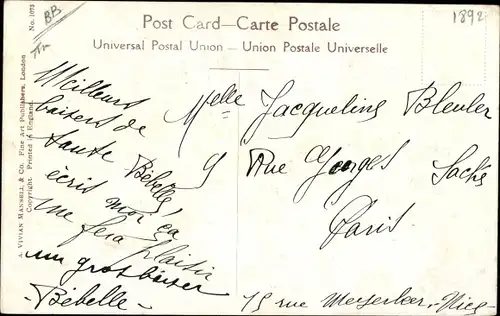 BB
No. 1073
1892
Post Card—Carte Postale
Universal Postal Union — Union Postale Universelle
A. VIVIAN MANSELL & CO. Fine Art Publishers, London
Copyright. Printed in England.
Meilleurs
baisers de
tante Bébelle,
écris moi ça
me fera plaisir
un gros baiser
-Bébelle-
Melle Jacqueline Bleuler
9 Rue Georges Sache
Paris
15 rue Meyerbeer. Nice